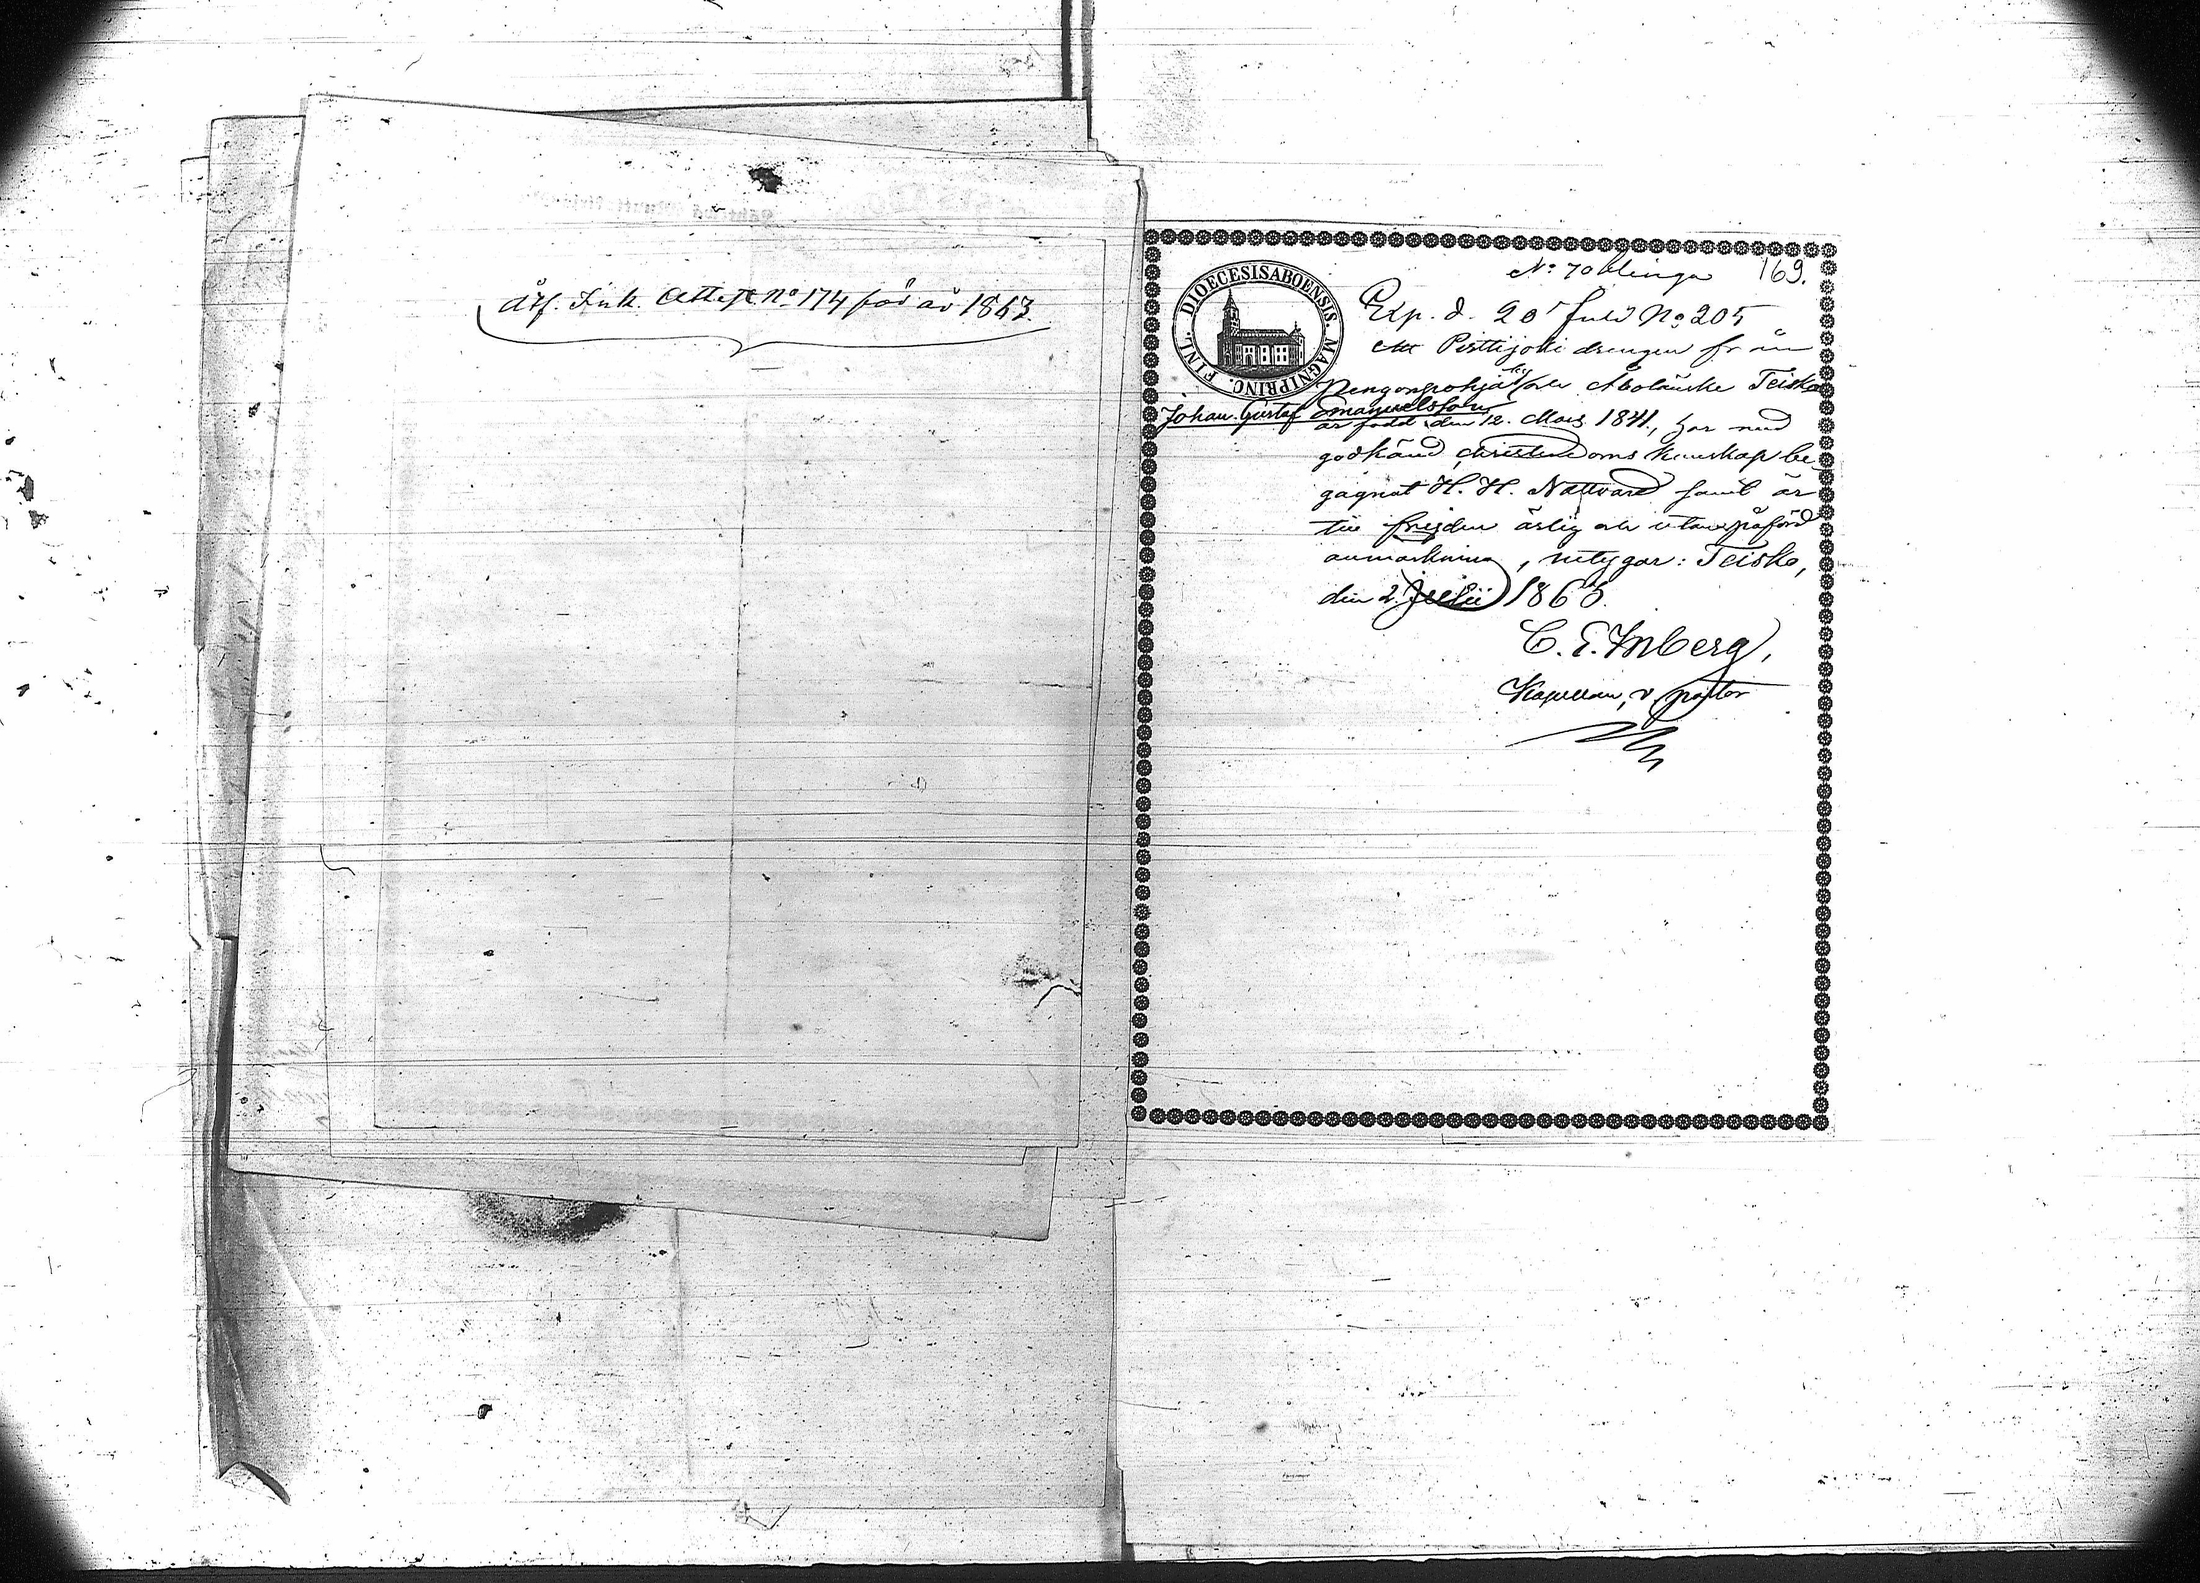 Årf. Ink. Attest No 174 för år 1863.
No 70 169.
DIOECESIS ABOENSIS. MAGNI PRINC. FINL.
Exp. d. 20 Juli No 205
Att Perttijoki drengen från
Pengonpohja by och Aboläuske Teisko
Johan Gustaf Emanuelsson
är född den 12. Mars 1841, har med
godkänd christendoms kunskap be-
gagnat H. H. Nattvard samt är
till frejden ärlig och utan påförd
anmärkning, intygar: Teisko,
den 2 Julii 1863.
C. E. Inberg,
Kapellan, v pastor